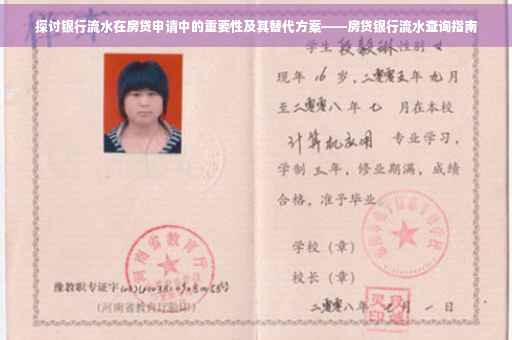 探讨银行流水在房贷申请中的重要性及其替代方案——房贷银行流水查询指南
学生 段毅琳 性别 女
现年 16 岁，二零零五年 九月
至二零零八年 七 月在本校
计算机应用 专业学习，
学制 三 年，修业期满，成绩
合格，准予毕业
学校（章）
校长（章）
豫教职专证字
（河南省教育厅验印）
河南省教育厅
二零零八年 七 月 一 日